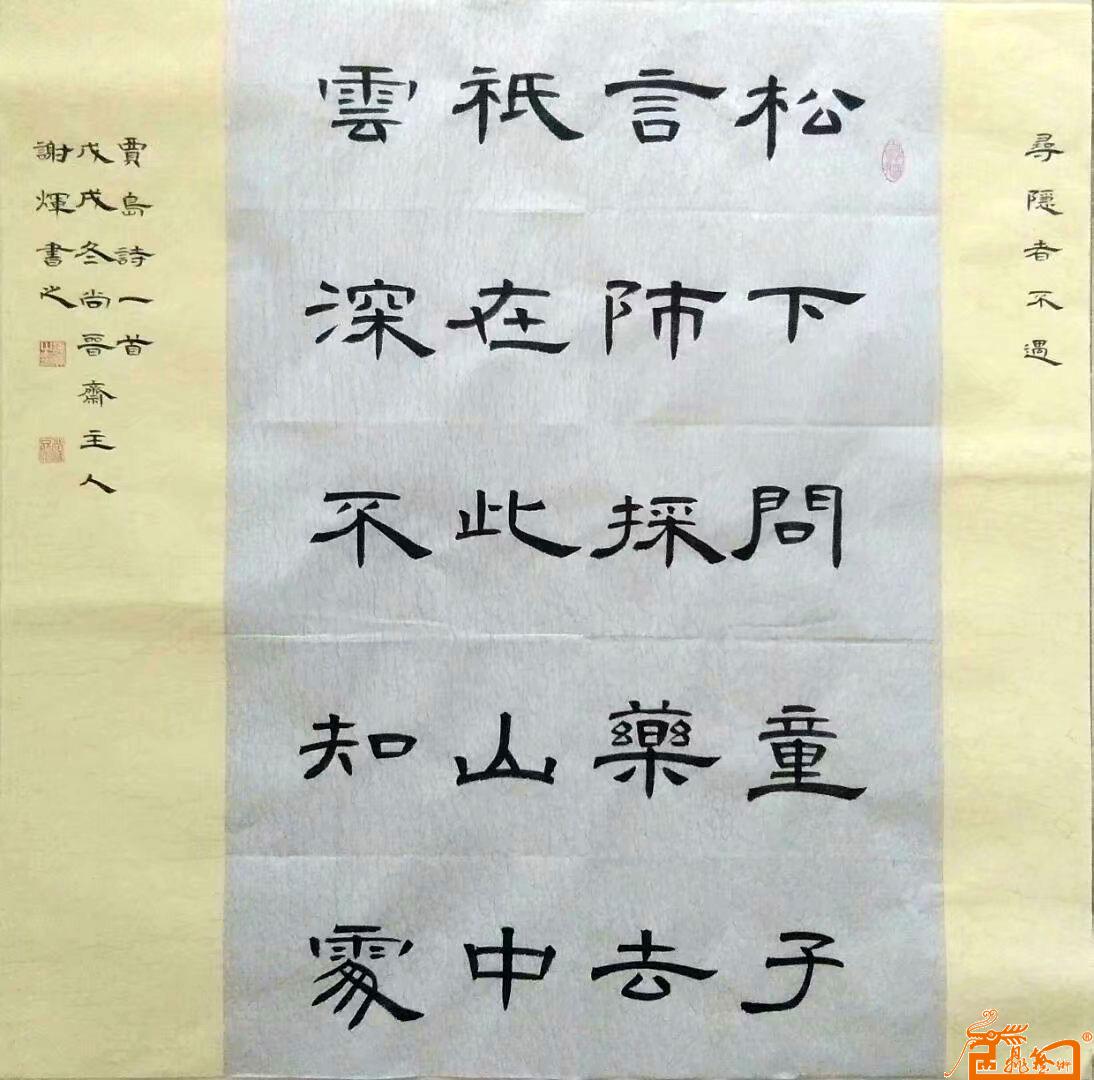 尋隱者不遇
松下問童子
言師採藥去
祇在此山中
雲深不知處
賈島詩一首
戊戌冬尚晉齋主人
謝煇書之